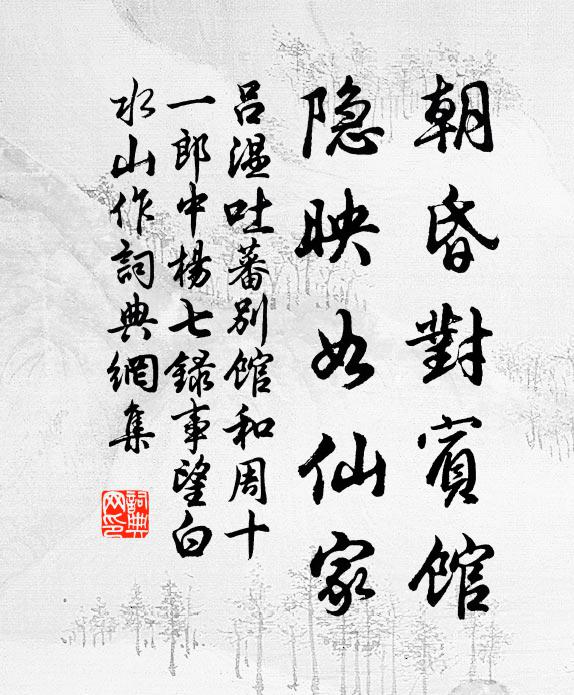 朝昏對賓館
隐映如仙家
吕温吐蕃別館和周十
一郎中楊七録事望白
水山作詞典網集
詞典
网印